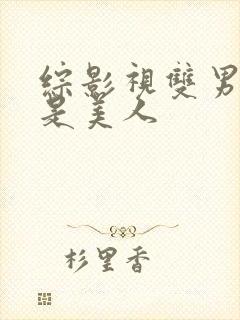 綜影視雙男
是美人
杉里香